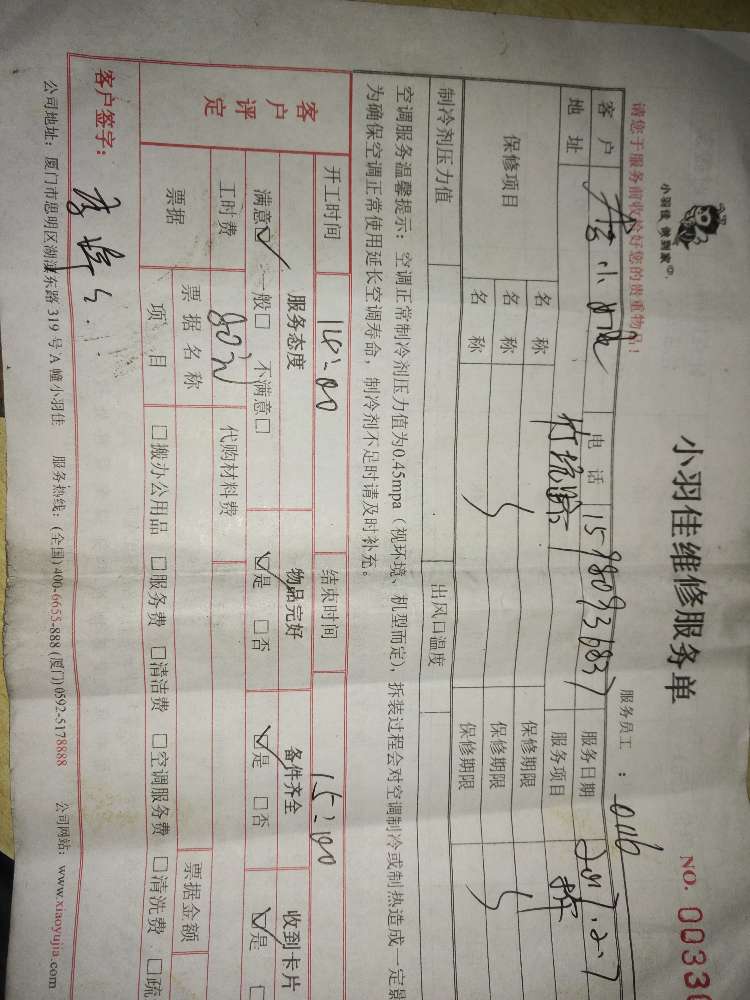 小羽佳 做到家
小羽佳维修服务单
NO. 00330
请您于服务前收拾好您的贵重物品!
服务员工：016
客户 电话 15980936837 服务日期 2017.2.7
地址 服务项目
保修项目 名称 保修期限
名称 保修期限
名称 保修期限
制冷剂压力值 出风口温度
空调服务温馨提示：空调正常制冷剂压力值为0.45mpa（视环境、机型而定），拆装过程会对空调制冷或制热造成一定
为确保空调正常使用延长空调寿命，制冷剂不足时请及时补充。
客户评定
开工时间 14:00 结束时间 15:00
服务态度 物品完好 备件齐全 收到卡片
满意☑ 一般□ 不满意□ ☑是 □否 ☑是 □否 ☑是
工时费 80元 代购材料费
票据 票据名称 票据金额
项目 □搬办公用品 □服务费 □清洁费 □空调服务费 □清洗费 □疏
客户签字：
公司地址：厦门市思明区湖滨东路 319 号 A 幢小羽佳 服务热线：(全国) 400-6655-888 (厦门) 0592-5178888 公司网站：www.xiaoyujia.com